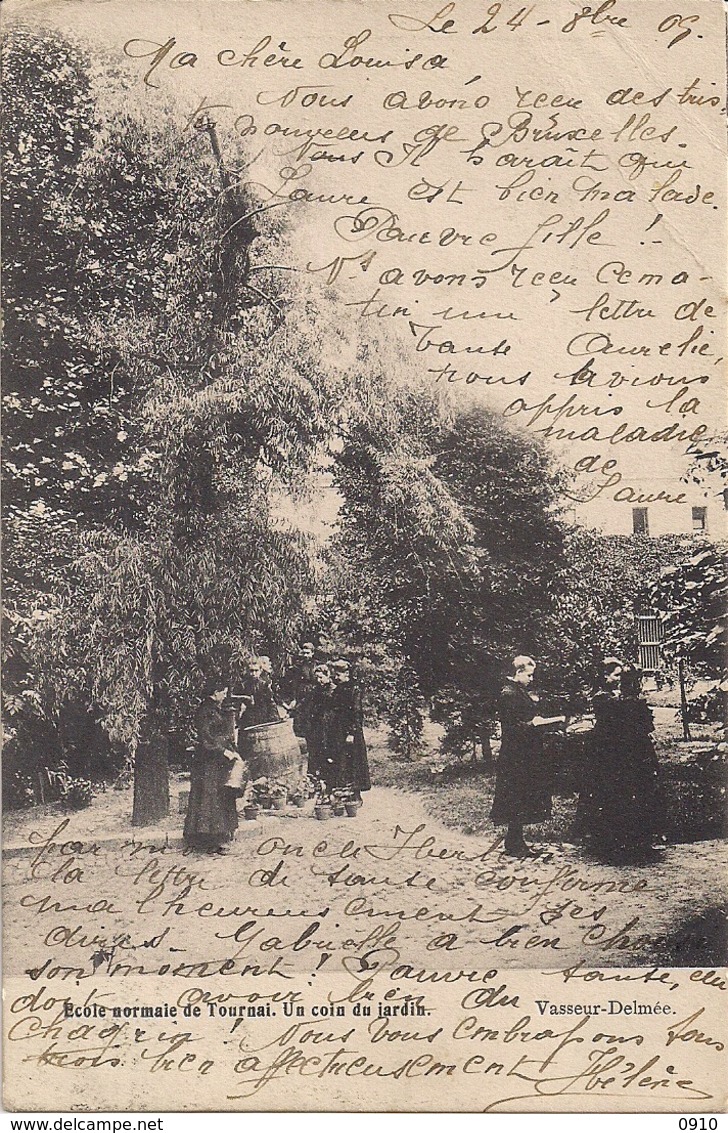 Le 24 - 8bre 05.
Ma chère Louisa
Nous avons reçu des tris-
tes nouvelles de Bruxelles.
Il paraît que
Laure est bien malade.
Pauvre fille !
Ns avons reçu ce ma-
tin une lettre de
tante Aurelie
nous avions
appris la
maladie
de
Laure
par mon oncle
la lettre de tante confirme
malheureusement ses
dires. Gabrielle a bien choisi
son moment ! Pauvre tante, elle
doit avoir bien du
Ecole normale de Tournai. Un coin du jardin. Vasseur-Delmée.
chagrin ! Nous vous embrassons tous
trois bien affectueusement Hélène
0910